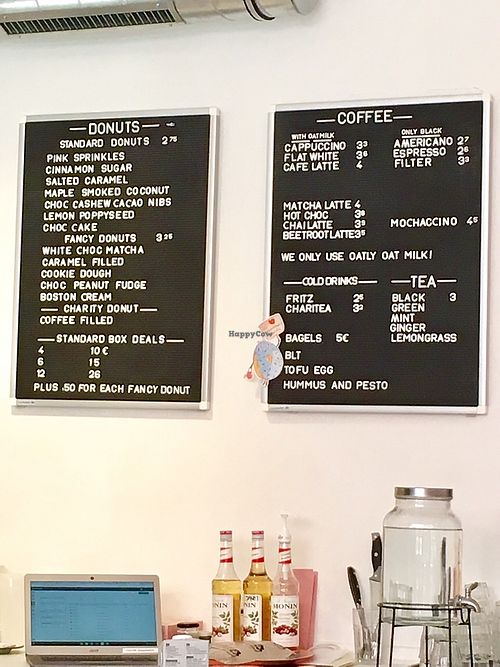 DONUTS
STANDARD DONUTS 2 75
PINK SPRINKLES
CINNAMON SUGAR
SALTED CARAMEL
MAPLE SMOKED COCONUT
CHOC CASHEW CACAO NIBS
LEMON POPPYSEED
CHOC CAKE
FANCY DONUTS 3 25
WHITE CHOC MATCHA
CARAMEL FILLED
COOKIE DOUGH
CHOC PEANUT FUDGE
BOSTON CREAM
CHARITY DONUT
COFFEE FILLED
STANDARD BOX DEALS
4 10 €
6 15
12 26
PLUS .50 FOR EACH FANCY DONUT
COFFEE
WITH OATMILK
CAPPUCCINO 3 3
FLAT WHITE 3 6
CAFE LATTE 4
ONLY BLACK
AMERICANO 2 7
ESPRESSO 2 6
FILTER 3 3
MATCHA LATTE 4
HOT CHOC 3 8
CHAI LATTE 3 8
BEETROOT LATTE 3 5
MOCHACCINO 4 5
WE ONLY USE OATLY OAT MILK!
COLD DRINKS
FRITZ 2 5
CHARITEA 3 3
TEA
BLACK 3
GREEN
MINT
GINGER
LEMONGRASS
BAGELS 5€
BLT
TOFU EGG
HUMMUS AND PESTO
HappyCow
MONIN
MONIN
MONIN
acer